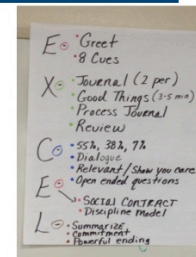 E • Greet
• 8 Cues
X • Journal (2 per)
• Good Things (3-5 min)
• Process Journal
• Review
C • 55%, 38%, 7%
• Dialogue
• Relevant/Show you care
• Open ended questions
E • Social Contract
• Discipline model
L • Summarize
• Commitment
• Powerful ending